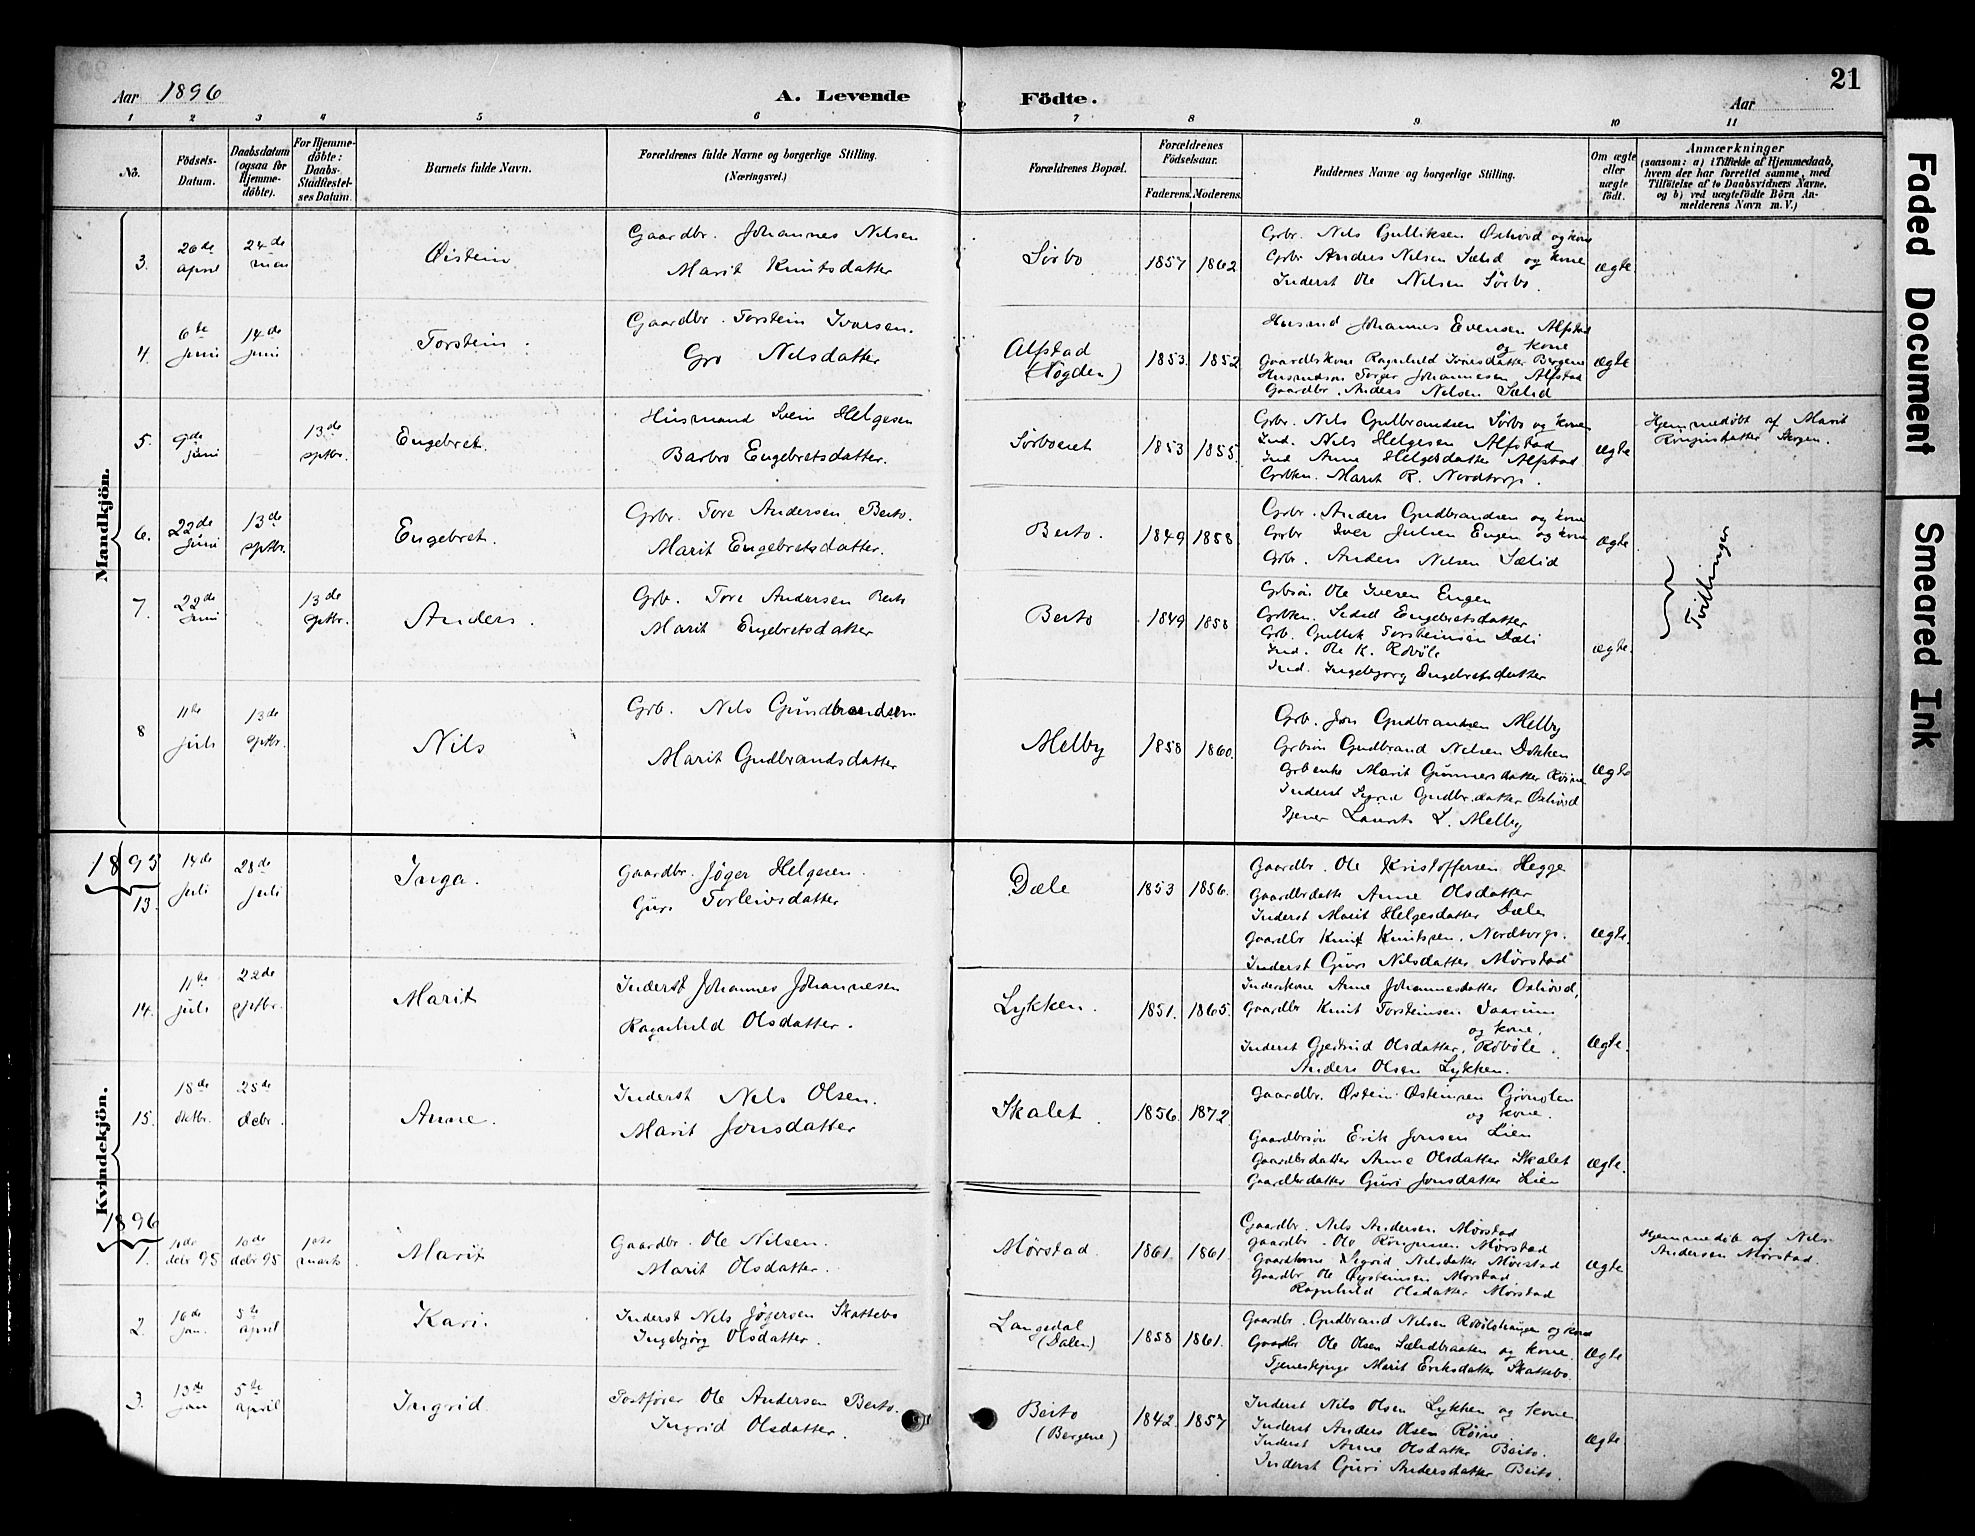 Aar 1896
A. Levende Födte.
Aar
21
1 2 3 4 5 6 7 8 9 10 11
No.
Födsels-
Datum.
Daabsdatum
(ogsaa for
Hjemme-
döbte).
For Hjemme-
döbte:
Daabs-
Stadfæstel-
ses Datum.
Barnets fulde Navn.
Forældrenes fulde Navne og borgerlige Stilling.
(Næringsvei.)
Forældrenes Bopæl.
Forældrenes
Födselsaar.
Faderens. Moderens.
Faddernes Navne og borgerlige Stilling.
Om ægte
eller
uægte
födt.
Anmærkninger
(saasom: a) i Tilfælde af Hjemmedaab,
hvem der har forrettet samme, med
Tilföielse af to Daabsvidners Navne,
og b) ved uægtefödte Börn An-
melderens Navn m.V.)
Mandkjön.
3. 26de april 24de mai Øistein
Gaardbr. Johannes Nilsen
Marit Knutsdatter
Sørbo 1857 1862
Grbr. Nils Gulliksen Oshovd og kone
Grbr Anders Nilsen Sælid og kone
Inderst Ole Nilsen Sørbo.
ægte
4. 6te juni 14de juni Torstein.
Gaardbr. Torstein Iversen.
Gro Nilsdatter
Alfstad 1853. 1852
Husmd Johannes Evensen Alfstad
og kone
Gaardbkone Ragnhild Iversdatter Bergene
Husmdsøn Johannesen Alfstad
Gaardbr. Anders Nilsen Sælid
ægte
5. 9de juni 13de sptbr. Engebret.
Husmand Svein Helgesen
Barbro Engebretsdatter.
Sørboeiet 1853 1855.
Grbr. Nils Gulbrandsen Sørbo og kone
Ind. Nils Helgesen Alfstad
Ind Anne Helgesdatter Alfstad
Grbkn. Marit R. Nordtorp.
ægte
Hjemmedøbt af Marit
6. 22de juni 13de sptbr. Engebret.
Grbr. Tore Andersen Beito.
Marit Engebretsdatter.
Beito. 1849 1858
Grbr. Anders Gudbrandsen og kone
Grbr Iver Julsen Engen og kone
Grbr. Anders Nilsen Sælid
ægte
Tvillinger
7. 22de juni 13de sptbr. Anders.
Grb. Tore Andersen Beito
Marit Engebretsdatter
Beito 1849 1858
Grbsøn Ole Iversen Engen
Grbkn. Sidsel Engebretsdatter
Grb. Gullik Torsteinsen Dæli
Ind. Ole K. Robøle
Ind. Ingebjørg Engebretsdatter
ægte.
8 11te juli 13de sptbr. Nils
Grb. Nils Gundbrandsen
Marit Gudbrandsdatter
Melby 1858 1860.
Grb. Jon Gudbrandsen Melby
Grbsøn Gudbrand Nilsen Dokken
Grbenke Marit Gunnersdatter Röine
Inderst Sigrid Gudbr.datter Oshovd
Tjener Laurits L. Melby
ægte
Kvindekjön.
1895
13. 14de juli 28de juli Inga.
Gaardbr. Jøger Helgesen.
Guri Torleivsdatter
Dæle 1853 1856.
Gaardbr. Ole Kristoffersen Hegge
Gaardbrdatter Anne Olsdatter
Inderst Marit Helgesdatter Dæle
Gaardbr Knut Knutsen. Nordtorp.
Inderst Guri Nilsdatter Mørstad
ægte.
14. 11te juli 22de sptbr. Marit
Inderst Johannes Johannesen
Ragnhild Olsdatter.
Lykken. 1851. 1865.
Inderskone Anne Johannesdatter Oshovd,
Gaardbr Knut Torsteinsen
og kone.
Inderst Gjertrud Olsdatter, Robøle.
Anders Olsen Lykken.
ægte.
15. 18de oktbr. 25de debr. Anne.
Inderst Nils Olsen.
Marit Jonsdatter
Skalet. 1856. 1872.
Gaardbr. Østein Østeinsen Grønolen
og kone.
Gaardbrsøn Erik Jonsen Lien
Gaardbrdatter Anne Olsdatter Skalet
Gaardbrdatter Guri Jonsdatter Lien
ægte.
1896
1. debr 95 debr 95 marts Marit
Gaardbr. Ole Nilsen.
Marit Olsdatter.
Mørstad. 1861. 1861
Gaardbr. Nils Andersen Mørstad
gaardbr. Ole Mørstad
Gaardkone Sigrid Nilsdatter Mørstad
Gaardbr Ole Øysteinsen Mørstad
Ragnhild Olsdatter Mørstad
ægte
Hjemmedøb af Nils
Andersen Mørstad.
2. 16de jan. 5te april Kari.
Inderst Nils Jøgersen Skattebo
Ingebjørg Olsdatter.
Langedal
(Dalen)
1858 1861.
Gaardbr. Gudbrand Nilsen Robølshaugen og kone
Gaardbr Ole Olsen Sælidbraaten og kone.
Tjenestepige Marit Eriksdatter Skattebo.
ægte
3. 13de jan 5te april Ingrid.
Postfører Ole Andersen Beito.
Ingrid Olsdatter.
Beito
(Bergene)
1842. 1857
Inderst Nils Olsen Lykken og kone
Inderst Anders Olsen Röine
Inderst Anne Olsdatter Beito.
Inderst Guri Andersdatter Beito.
ægte
Faded Document
Smeared Ink